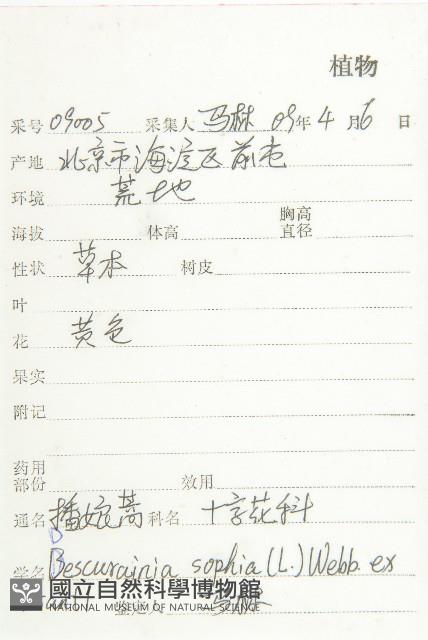 植物
采号 09005 采集人 马林 09年 4 月 6 日
产地 北京市海淀区前屯
环境 荒地
胸高
海拔 体高 直径
性状 草本 树皮
叶
花 黄色
果实
附记
药用
部份 效用
通名 播娘蒿 科名 十字花科
D
学名 Bescurainia sophia (L.) Webb. ex
國立自然科學博物館
NATIONAL MUSEUM OF NATURAL SCIENCE